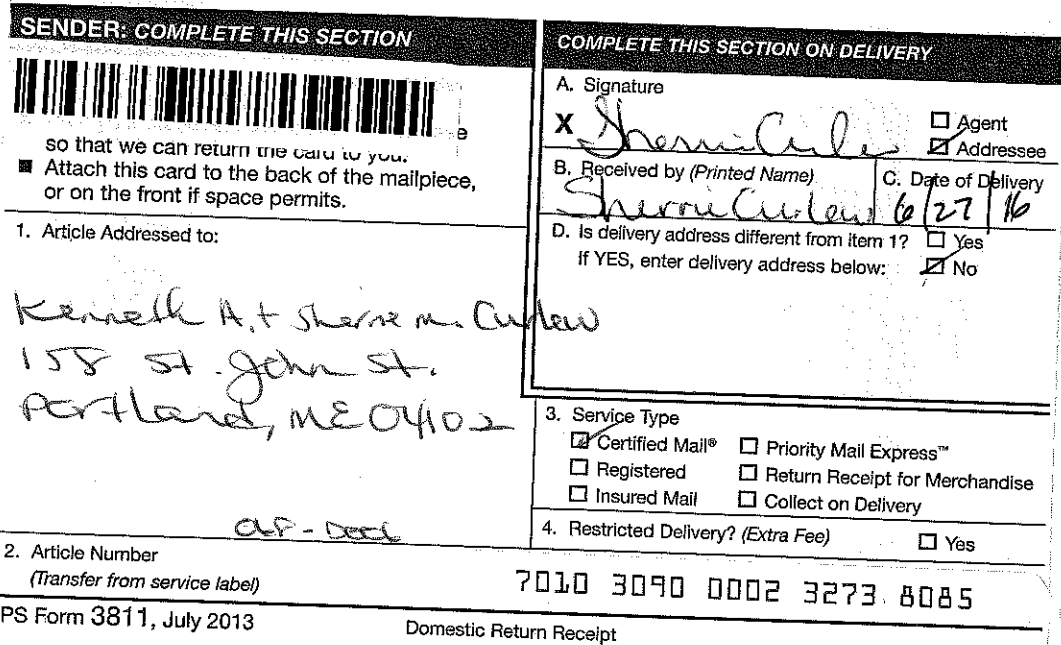 SENDER: COMPLETE THIS SECTION
e
so that we can return the card to you.
■ Attach this card to the back of the mailpiece,
or on the front if space permits.
1. Article Addressed to:
Kenneth A. + Sherrie M. Curlew
158 St. John St.
Portland, ME 04102
2. Article Number
(Transfer from service label)
7010 3090 0002 3273 8085
PS Form 3811, July 2013
Domestic Return Receipt
COMPLETE THIS SECTION ON DELIVERY
A. Signature
X Sherrie Curlew
☐ Agent
☑ Addressee
B. Received by (Printed Name)
Sherrie Curlew
C. Date of Delivery
6/27/16
D. Is delivery address different from item 1? ☐ Yes
If YES, enter delivery address below: ☑ No
3. Service Type
☑ Certified Mail® ☐ Priority Mail Express™
☐ Registered ☐ Return Receipt for Merchandise
☐ Insured Mail ☐ Collect on Delivery
4. Restricted Delivery? (Extra Fee) ☐ Yes